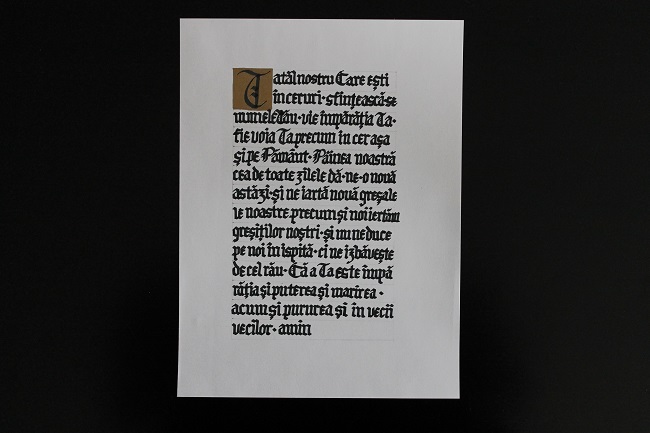 Tatăl nostru Care ești
în ceruri · sfințească-se
numele Tău · vie împărăția Ta ·
fie voia Ta precum în cer așa
și pe Pământ · Pâinea noastră
cea de toate zilele dă-ne-o nouă
astăzi · și ne iartă nouă greșale
le noastre precum și noi iertăm
greșiților noștri · și nu ne duce
pe noi în ispită · ci ne izbăvește
de cel rău · Că a Ta este împă
răția și puterea și marirea ·
acum și pururea și în vecii
vecilor · amin